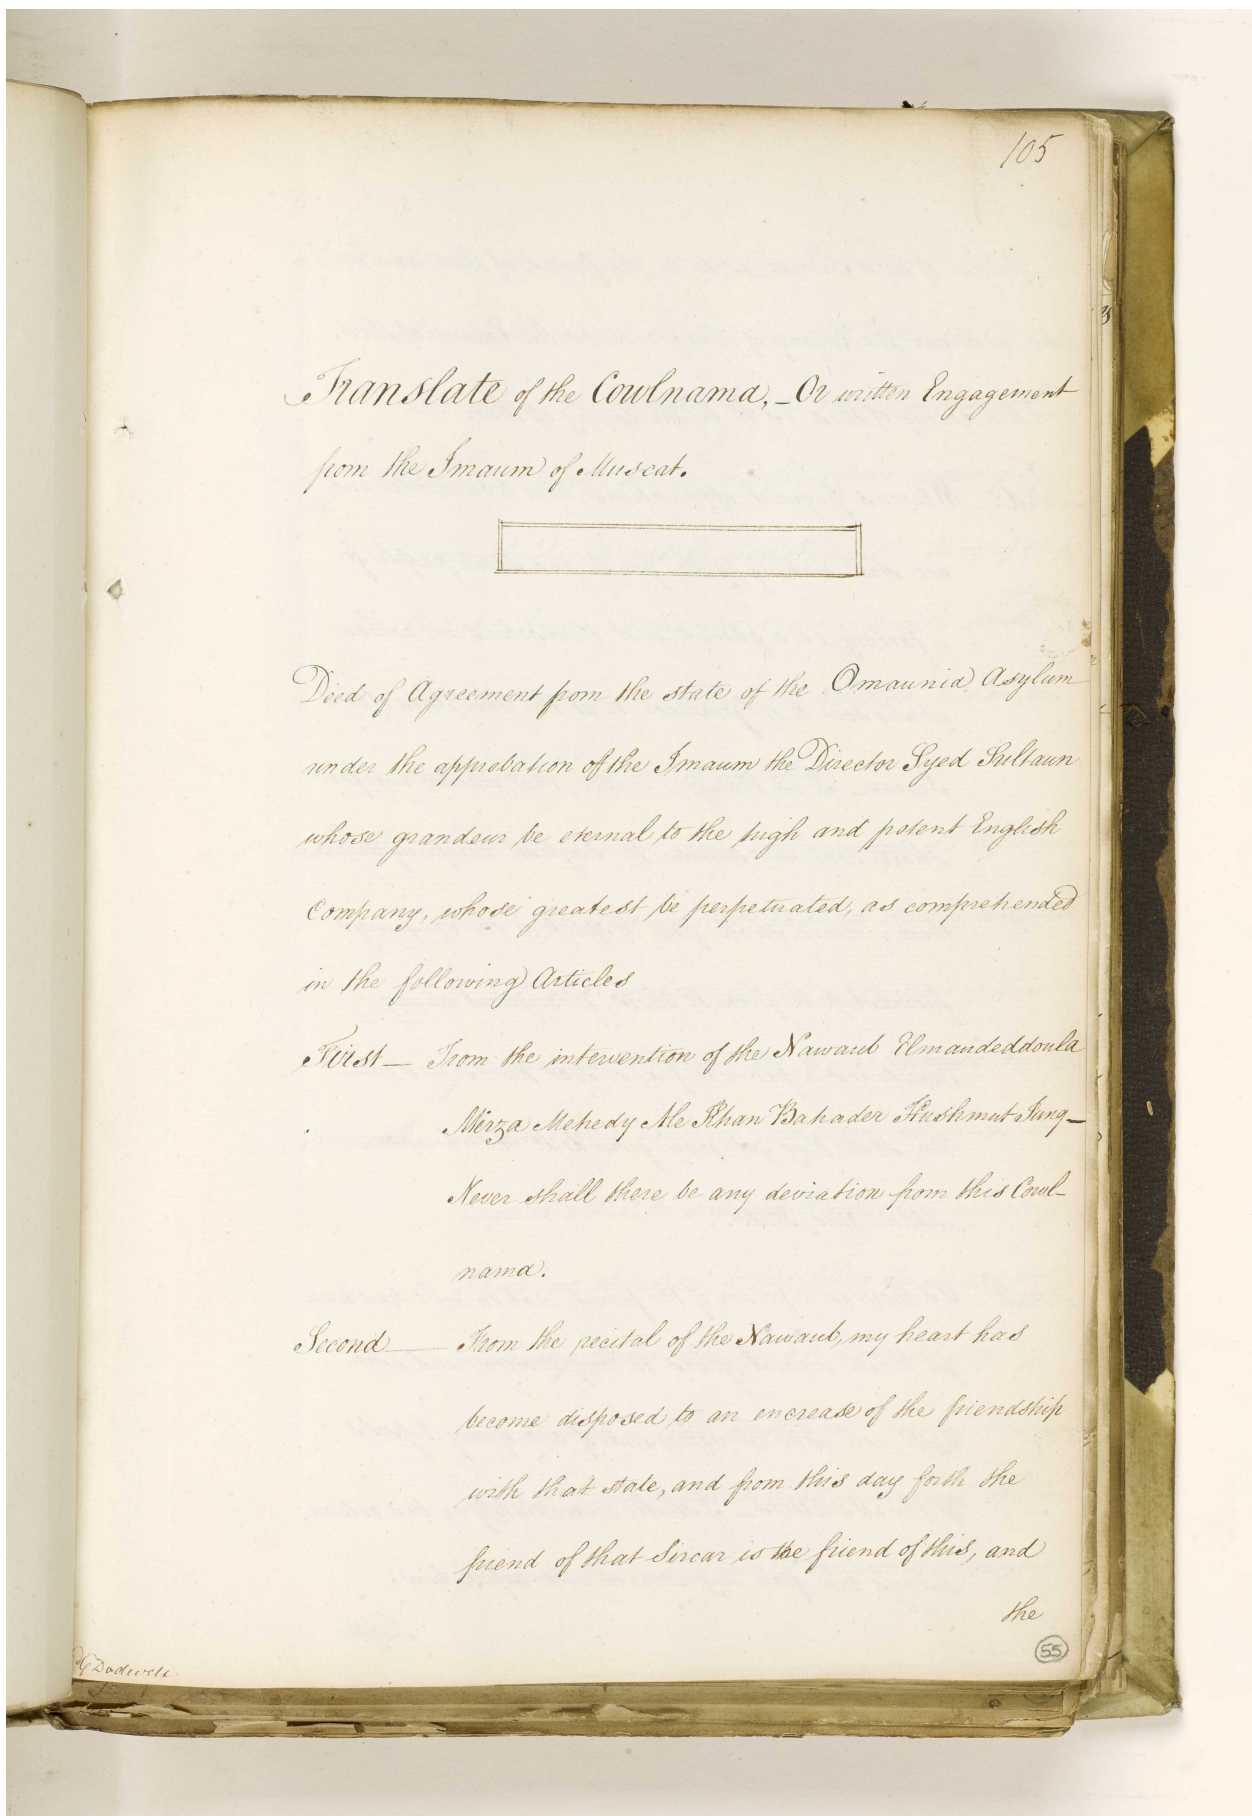 105
Translate of the Cowlnama, _ Or written Engagement
from the Imaum of Muscat.
Deed of Agreement from the state of the Omaunia Asylum
under the approbation of the Imaum the Director Syed Sultaun
whose grandeur be eternal to the high and potent English
Company, whose greatest be perpetuated, as comprehended
in the following Articles
First _ From the intervention of the Nawaub Elmaudeddoula
Mirza Mehedy Ale Khan Bahader Hushmut Jung _
Never shall there be any deviation from this Cowl-
nama.
Second _ From the recital of the Nawaub, my heart has
become disposed to an encrease of the friendship
with that state, and from this day forth the
friend of that Sircar is the friend of this, and
the
55
Dodwell